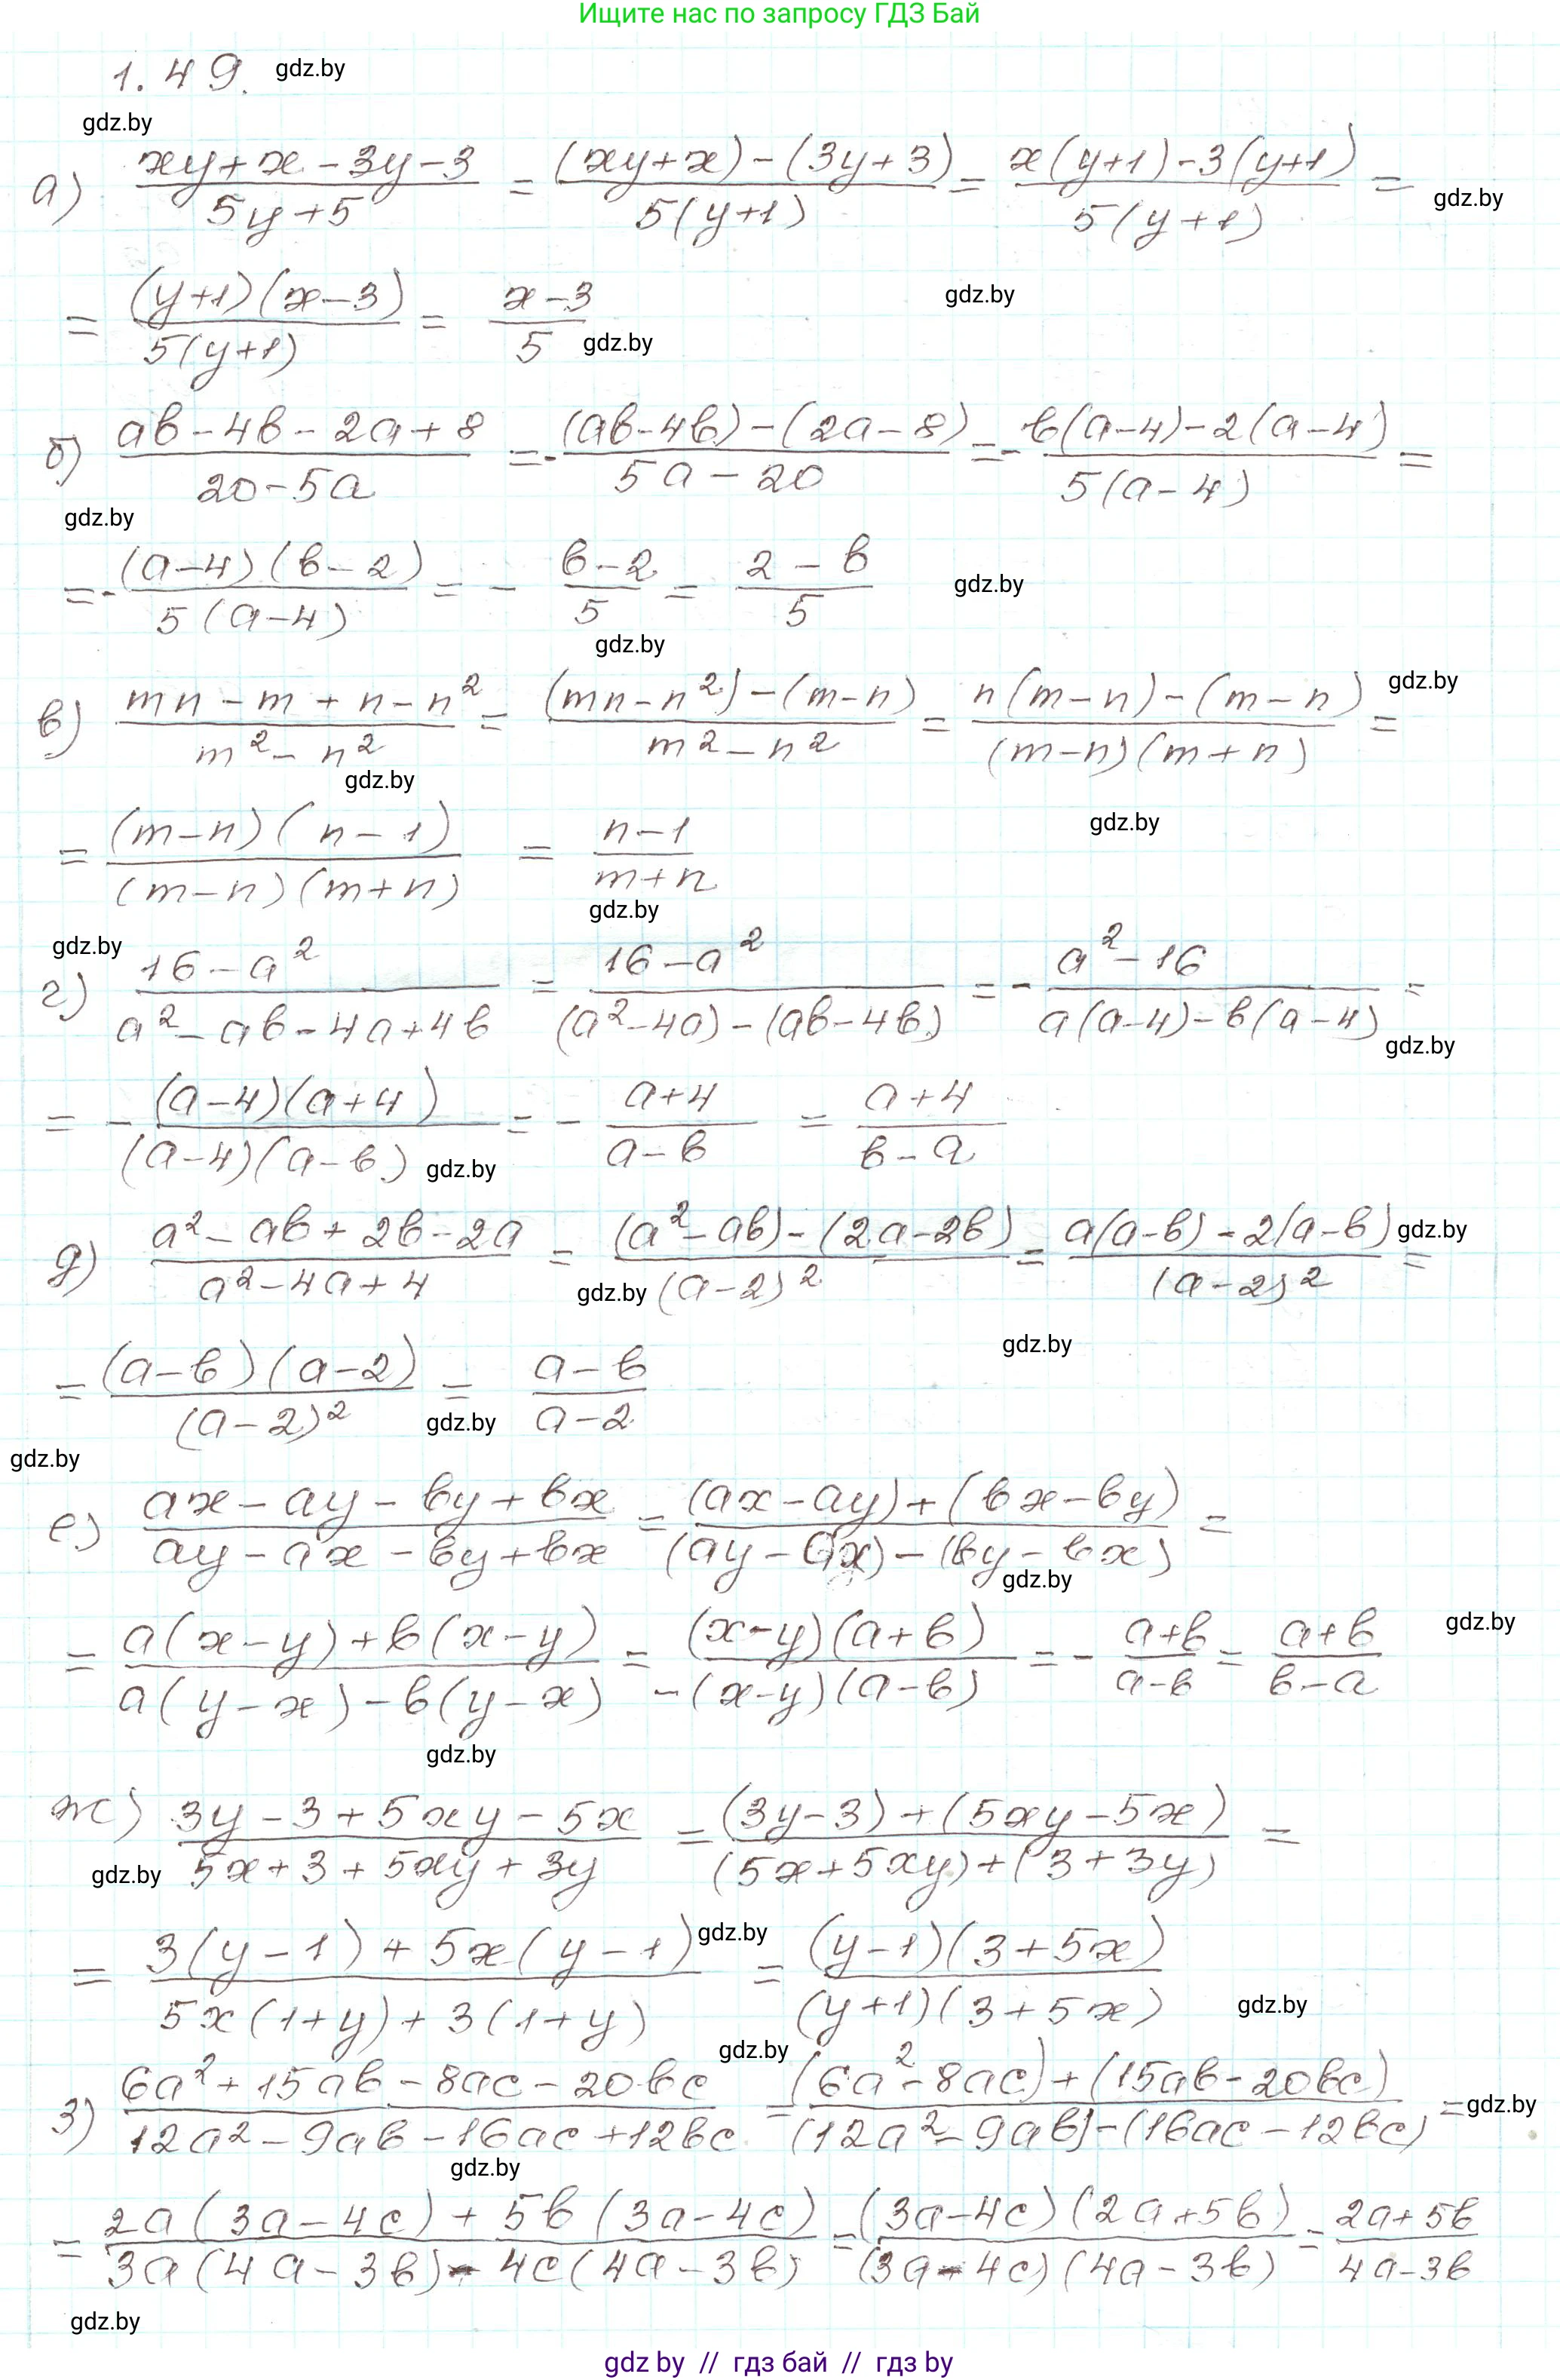 Ищите нас по запросу ГДЗ Бай
1.49. gdz.by
gdz.by
а) (xy+x-3y-3)/(5y+5) = ((xy+x)-(3y+3))/(5(y+1)) = (x(y+1)-3(y+1))/(5(y+1)) = gdz.by
= ((y+1)(x-3))/(5(y+1)) = (x-3)/5 gdz.by gdz.by
б) (ab-4b-2a+8)/(20-5a) = -((ab-4b)-(2a-8))/(5a-20) = -(b(a-4)-2(a-4))/(5(a-4)) =
gdz.by
= -((a-4)(b-2))/(5(a-4)) = -(b-2)/5 = (2-b)/5 gdz.by
gdz.by
в) (mn-m+n-n²)/(m²-n²) = ((mn-n²)-(m-n))/(m²-n²) = (n(m-n)-(m-n))/((m-n)(m+n)) = gdz.by
gdz.by
= ((m-n)(n-1))/((m-n)(m+n)) = (n-1)/(m+n) gdz.by
gdz.by
gdz.by
г) (16-a²)/(a²-ab-4a+4b) = (16-a²)/((a²-4a)-(ab-4b)) = -(a²-16)/(a(a-4)-b(a-4)) = gdz.by
= -((a-4)(a+4))/((a-4)(a-b)) = -(a+4)/(a-b) = (a+4)/(b-a) gdz.by
д) (a²-ab+2b-2a)/(a²-4a+4) = ((a²-ab)-(2a-2b))/((a-2)²) = (a(a-b)-2(a-b))/((a-2)²) = gdz.by
gdz.by
gdz.by
= ((a-b)(a-2))/((a-2)²) = (a-b)/(a-2) gdz.by
gdz.by
е) (ax-ay-by+bx)/(ay-ax-by+bx) = ((ax-ay)+(bx-by))/((ay-ax)-(by-bx)) =
gdz.by
= (a(x-y)+b(x-y))/(a(y-x)-b(y-x)) = ((x-y)(a+b))/(-(x-y)(a-b)) = -(a+b)/(a-b) = (a+b)/(b-a) gdz.by
gdz.by
ж) (3y-3+5xy-5x)/(5x+3+5xy+3y) = ((3y-3)+(5xy-5x))/((5x+5xy)+(3+3y)) =
gdz.by
= (3(y-1)+5x(y-1))/(5x(1+y)+3(1+y)) = ((y-1)(3+5x))/((y+1)(3+5x)) gdz.by
gdz.by
gdz.by
з) (6a²+15ab-8ac-20bc)/(12a²-9ab-16ac+12bc) = ((6a²-8ac)+(15ab-20bc))/((12a²-9ab)-(16ac-12bc)) = gdz.by
gdz.by
= (2a(3a-4c)+5b(3a-4c))/(3a(4a-3b)-4c(4a-3b)) = ((3a-4c)(2a+5b))/((3a-4c)(4a-3b)) = (2a+5b)/(4a-3b)
gdz.by
gdz by // гдз бай // gdz by